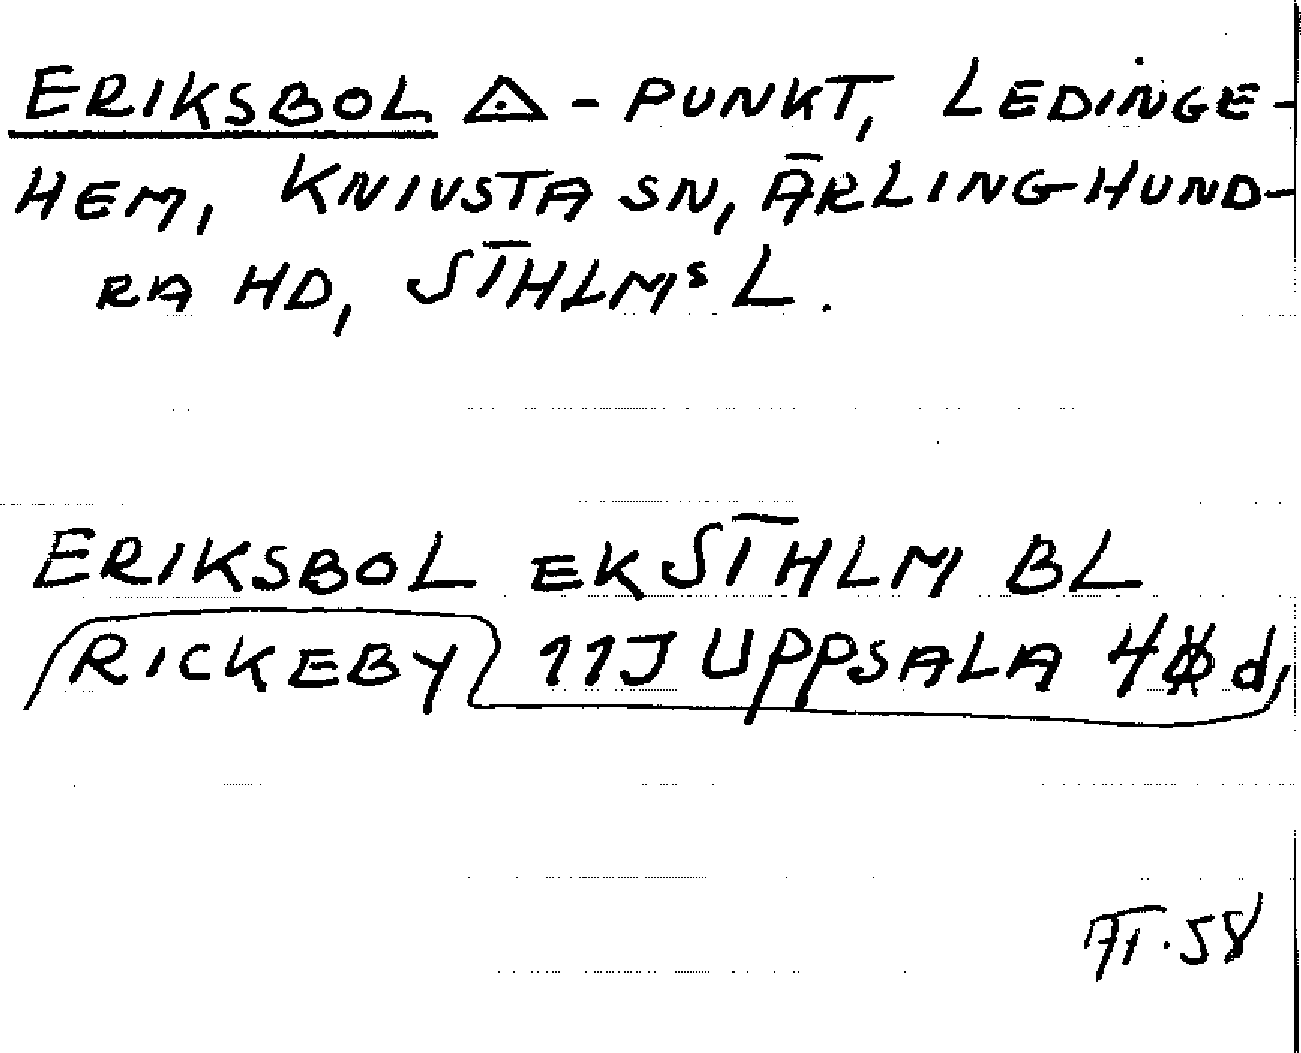 ERIKSBOL △ - PUNKT, LEDINGE-
HEM, KNIVSTA SN, ÄRLINGHUND-
RA HD, STHLMs L.
ERIKSBOL EK STHLM BL
RICKEBY 11J UPPSALA 4 d,
58